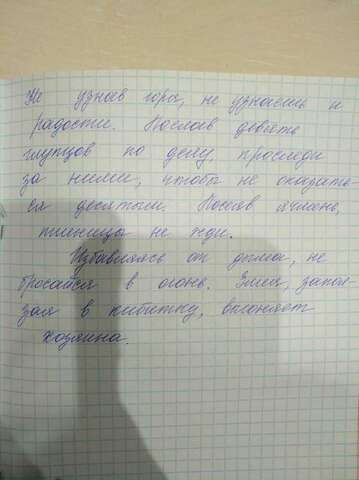 Не узнав горя, не узнаешь и
радости. Послав девять
глупцов по делу, проследи
за ними, чтобы не оказать-
ся десятым. Посеяв ячмень,
пшеницы не жди.
Избавляясь от дыма, не
бросайся в огонь. Змея, запол-
зая в кибитку, выгоняет
хозяина.